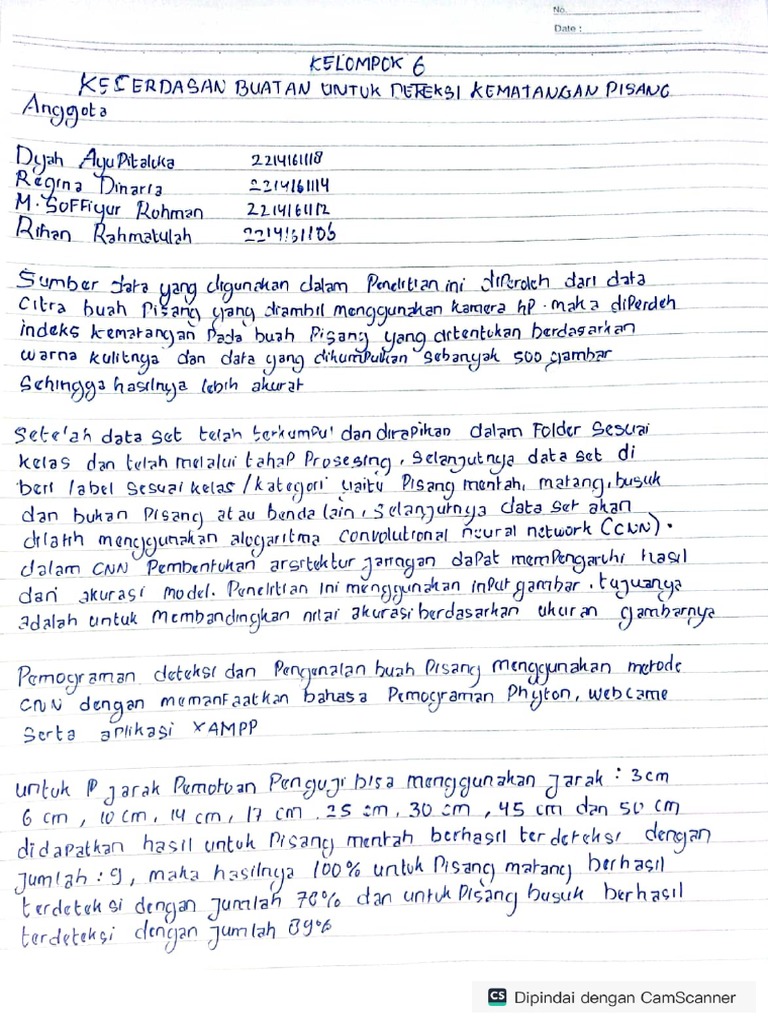 No.
Date :
KELOMPOK 6
KECERDASAN BUATAN UNTUK DETEKSI KEMATANGAN PISANG
Anggota
Dyah Ayu Pitaluka 2214161118
Regina Dinaria 2214161114
M. Soffiyur Rohman 2214161112
Rihan Rahmatulah 2214161106
Sumber data yang digunakan dalam Penelitian ini diperoleh dari data
Citra buah Pisang yang diambil menggunakan kamera hp. maka diperoleh
indeks kematangan Pada buah Pisang yang ditentukan berdasarkan
warna kulitnya dan data yang dikumpulkan sebanyak 500 gambar
Sehingga hasilnya lebih akurat
Setelah data set telah terkumpul dan dirapikan dalam Folder Sesuai
kelas dan telah melalui tahap Prosesing, Selanjutnya data set di
beri label sesuai kelas /kategori yaitu Pisang mentah, matang, busuk
dan bukan Pisang atau benda lain, Selanjutnya data set akan
dilatih menggunakan alogaritma convolutional neural network (CNN).
dalam CNN Pembentukan arsitektur jaringan dapat mempengaruhi hasil
dari akurasi model. Penelitian ini menggunakan input gambar. tujuanya
adalah untuk membandingkan nilai akurasi berdasarkan ukuran gambarnya
Pemograman deteksi dan Pengenalan buah Pisang menggunakan metode
CNN dengan memanfaatkan bahasa Pemograman Phyton, webcame
Serta aplikasi XAMPP
untuk jarak Pemotoan Penguji bisa menggunakan jarak : 3 cm
6 cm, 10 cm, 14 cm, 17 cm, 25 cm, 30 cm, 45 cm dan 50 cm
didapatkan hasil untuk Pisang mentah berhasil terdeteksi dengan
Jumlah : 9, maka hasilnya 100% untuk Pisang matang berhasil
terdeteksi dengan jumlah 78% dan untuk Pisang busuk berhasil
terdeteksi dengan jumlah 89%
CS Dipindai dengan CamScanner